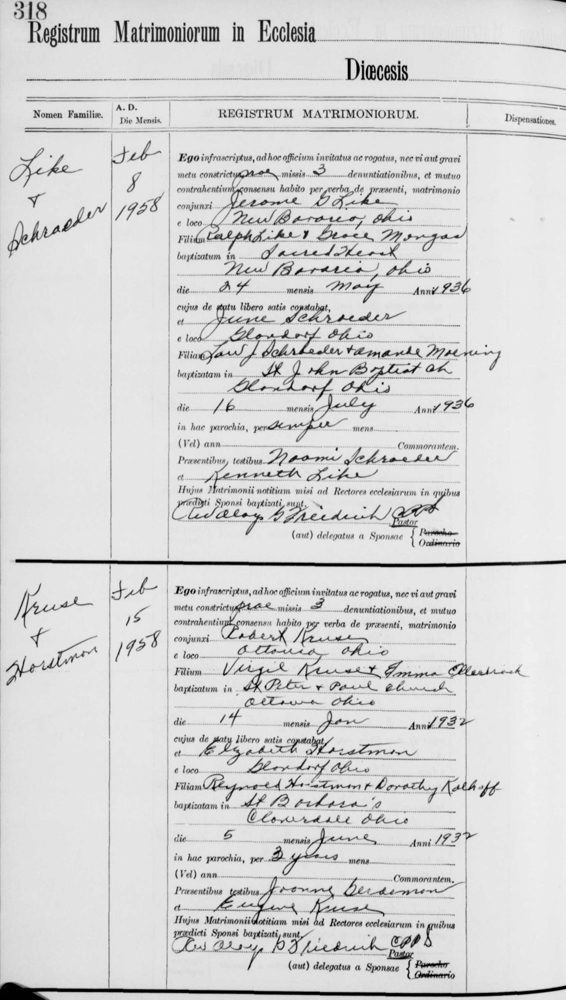 318
Registrum Matrimoniorum in Ecclesia
Diœcesis
Nomen Familiæ.
A. D.
Die Mensis.
REGISTRUM MATRIMONIORUM.
Dispensationes.
Like
+
Schroeder
Feb
8
1958
Ego infrascriptus, ad hoc officium invitatus ac rogatus, nec vi aut gravi
metu constrictus, prae missis 3 denuntiationibus, et mutuo
contrahentium consensu habito per verba de præsenti, matrimonio
conjunxi Jerome G Like
e loco New Bavaria, Ohio
Filium Ralph Like & Grace Mongas
baptizatum in Sacred Heart
New Bavaria, Ohio
die 24 mensis May Anni 1936
cujus de statu libero satis constabat,
et June Schroeder
e loco Glandorf Ohio
Filiam Law J Schroeder + Amanda Moening
baptizatam in St John Baptist Ch
Glandorf Ohio
die 16 mensis July Anni 1936
in hac parochia, per semper mens
(Vel) ann Commorantem.
Præsentibus testibus Naomi Schroeder
et Kenneth Like
Hujus Matrimonii notitiam misi ad Rectores ecclesiarum in quibus
prædicti Sponsi baptizati sunt.
Rev Aloys G Friedrich CPPS
Pastor
(aut) delegatus a Sponsae { Parocho
Ordinario
Kruse
+
Horstman
Feb
15
1958
Ego infrascriptus, ad hoc officium invitatus ac rogatus, nec vi aut gravi
metu constrictus, prae missis 3 denuntiationibus, et mutuo
contrahentium consensu habito per verba de præsenti, matrimonio
conjunxi Robert Kruse
e loco Ottawa Ohio
Filium Virgil Kruse & Emma Ellerbrock
baptizatum in St Peter + Paul Church
Ottawa Ohio
die 14 mensis Jan Anni 1932
cujus de statu libero satis constabat,
et Elizabeth Horstman
e loco Glandorf Ohio
Filiam Reynold Horstman + Dorothy Kalhoff
baptizatam in St Barbara's
Cloverdale Ohio
die 5 mensis June Anni 1932
in hac parochia, per 3 years mens
(Vel) ann Commorantem.
Præsentibus testibus Joanne Gerdeman
et Eugene Kruse
Hujus Matrimonii notitiam misi ad Rectores ecclesiarum in quibus
prædicti Sponsi baptizati sunt.
Rev Aloys G Friedrich CPPS
Pastor
(aut) delegatus a Sponsae { Parocho
Ordinario